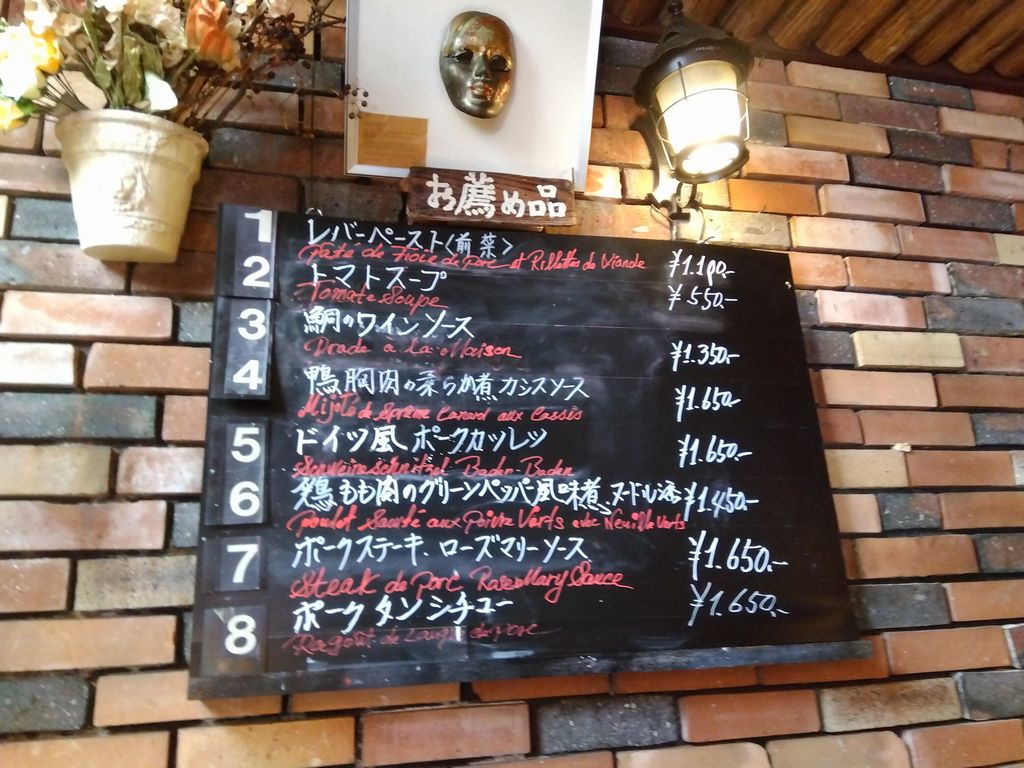 お薦め品
1 レバーペースト〈前菜〉 ¥1.100-
Paté de Foie de Porc et Rillettes de Viande
2 トマトスープ ¥550.-
Tomate Soupe
3 鯛のワインソース
Drade à la Maison ¥1.350-
4 鴨胸肉の柔らか煮 カシスソース
Mijoté de Suprème Canard aux Cassis ¥1.650-
5 ドイツ風 ポークカッレツ
Schweineschnitzel Baden-Baden ¥1.650.-
6 鶏もも肉のグリーンペッパー風味煮、ヌードル添 ¥1.450-
poulet Sauté aux Poivre Verts avec Neuille Verts
7 ポークステーキ、ローズマリーソース ¥1.650.-
Steak de porc RoseMary Sauce
8 ポークタンシチュー ¥1.650.-
Ragout de Langue de porc